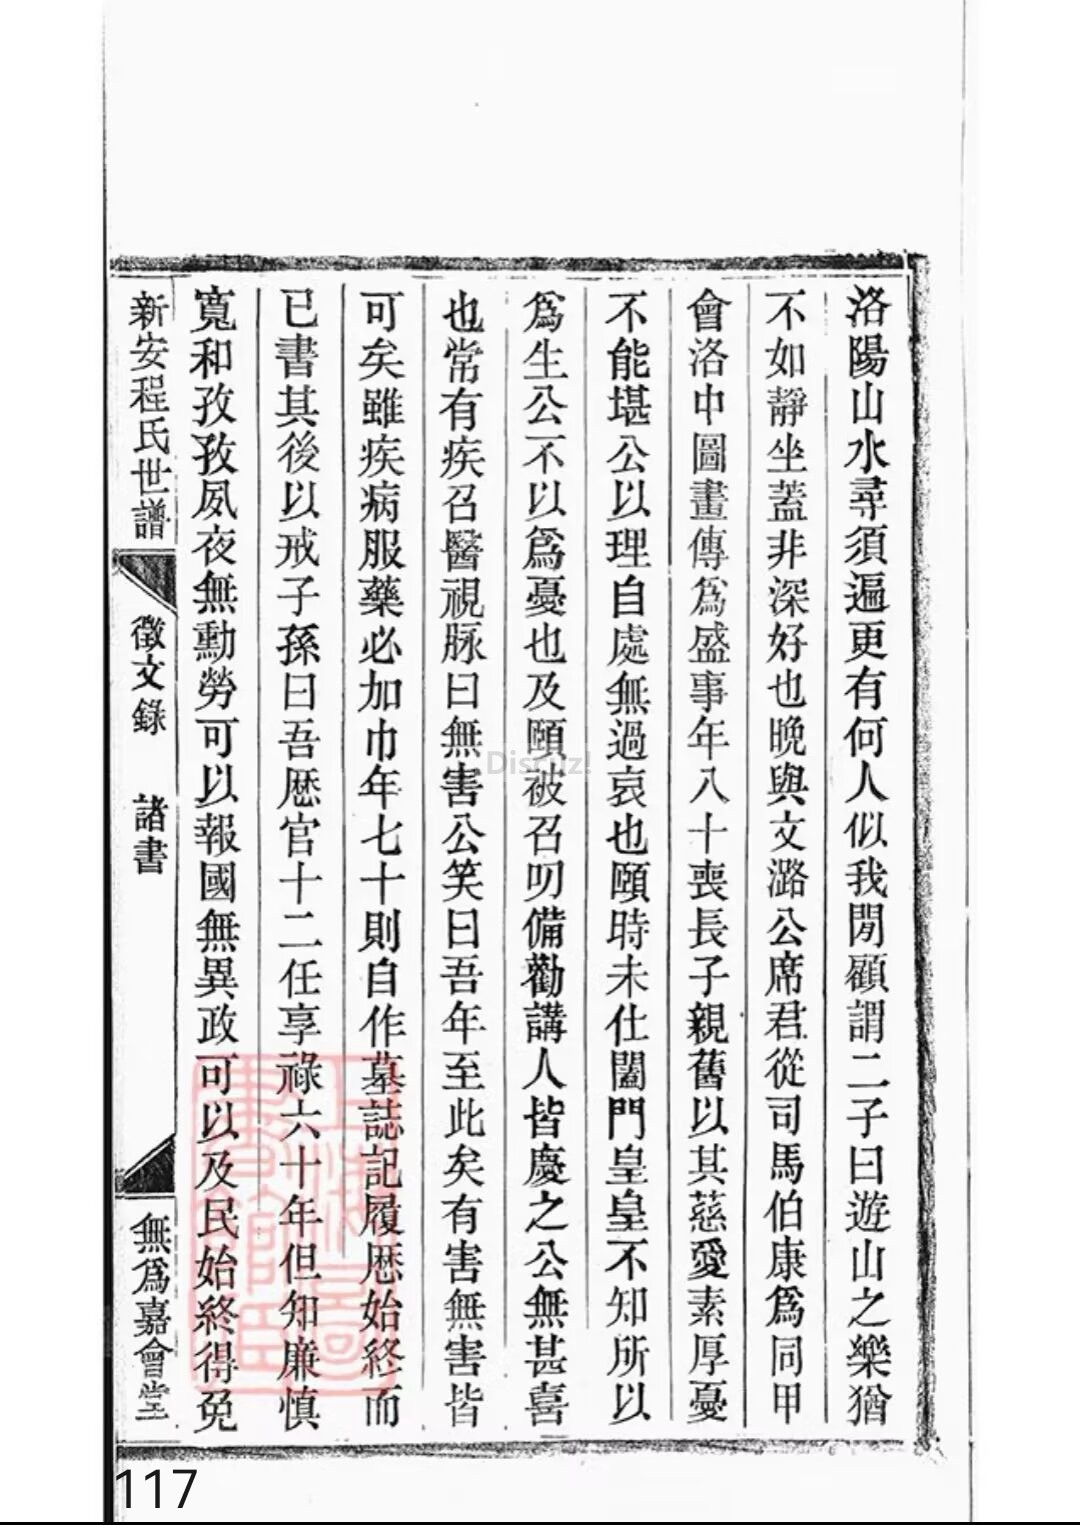 洛陽山水尋須遍更有何人似我閒顧謂二子曰遊山之樂猶
不如靜坐蓋非深好也晚與文潞公席君從司馬伯康爲同甲
會洛中圖畫傳爲盛事年八十喪長子親舊以其慈愛素厚憂
不能堪公以理自處無過哀也頤時未仕闔門皇皇不知所以
爲生公不以爲憂也及頤被召叨備勸講人皆慶之公無甚喜
也常有疾召醫視脉曰無害公笑曰吾年至此矣有害無害皆
可矣雖疾病服藥必加巾年七十則自作墓誌記履歷始終而
已書其後以戒子孫曰吾歷官十二任享祿六十年但知廉慎
寬和孜孜夙夜無勳勞可以報國無異政可以及民始終得免
新安程氏世譜
徵文錄 諸書
無爲嘉會堂
Discuz!
117